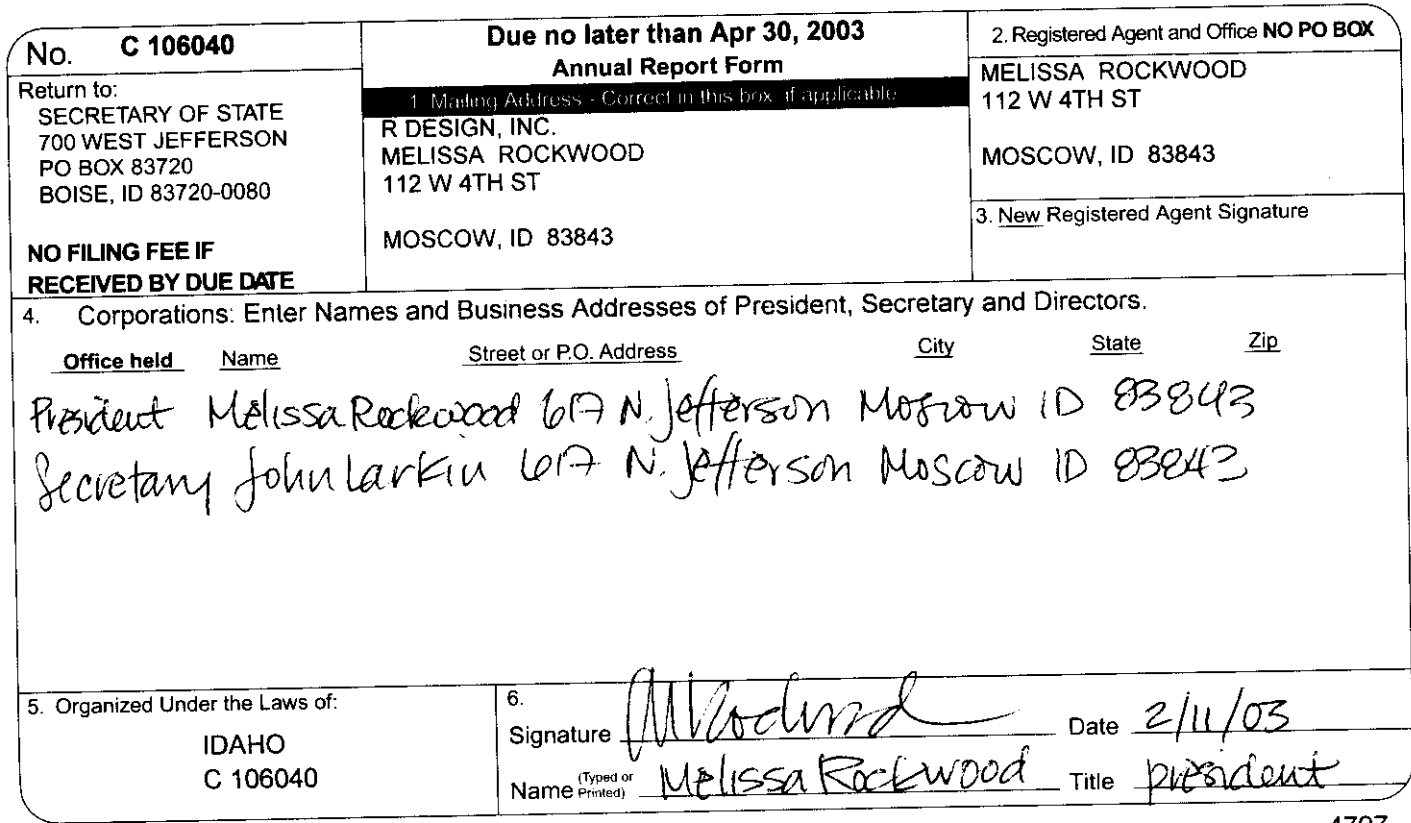 No. C 106040
Return to:
SECRETARY OF STATE
700 WEST JEFFERSON
PO BOX 83720
BOISE, ID 83720-0080
NO FILING FEE IF
RECEIVED BY DUE DATE
Due no later than Apr 30, 2003
Annual Report Form
1 Mailing Address - Correct in this box if applicable
R DESIGN, INC.
MELISSA ROCKWOOD
112 W 4TH ST
MOSCOW, ID 83843
2. Registered Agent and Office NO PO BOX
MELISSA ROCKWOOD
112 W 4TH ST
MOSCOW, ID 83843
3. New Registered Agent Signature
4. Corporations: Enter Names and Business Addresses of President, Secretary and Directors.
Office held Name Street or P.O. Address City State Zip
President Melissa Rockwood 617 N. Jefferson Moscow ID 83843
Secretary John Larkin 617 N. Jefferson Moscow ID 83843
5. Organized Under the Laws of:
IDAHO
C 106040
6.
Signature MRockwood Date 2/11/03
Name (Typed or Printed) Melissa Rockwood Title president